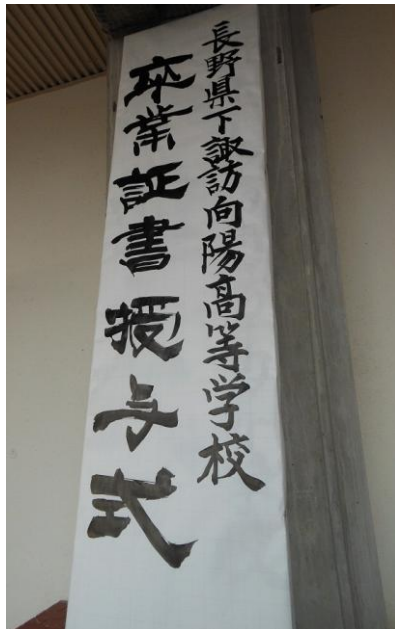 長野県下諏訪向陽高等学校
卒業証書授与式